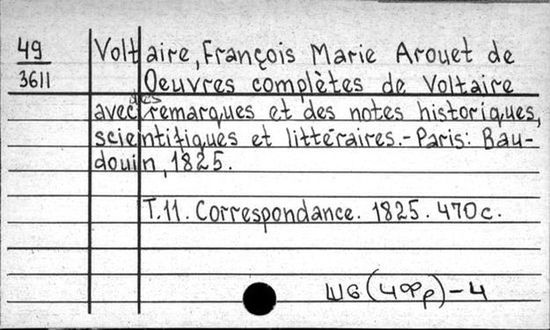 49
3611
Voltaire, François Marie Arouet de
Oeuvres complètes de Voltaire
avec des remarques et des notes historiques,
scientifiques et littéraires.-Paris: Bau-
douin, 1825.
T.11. Correspondance. 1825. 470 c.